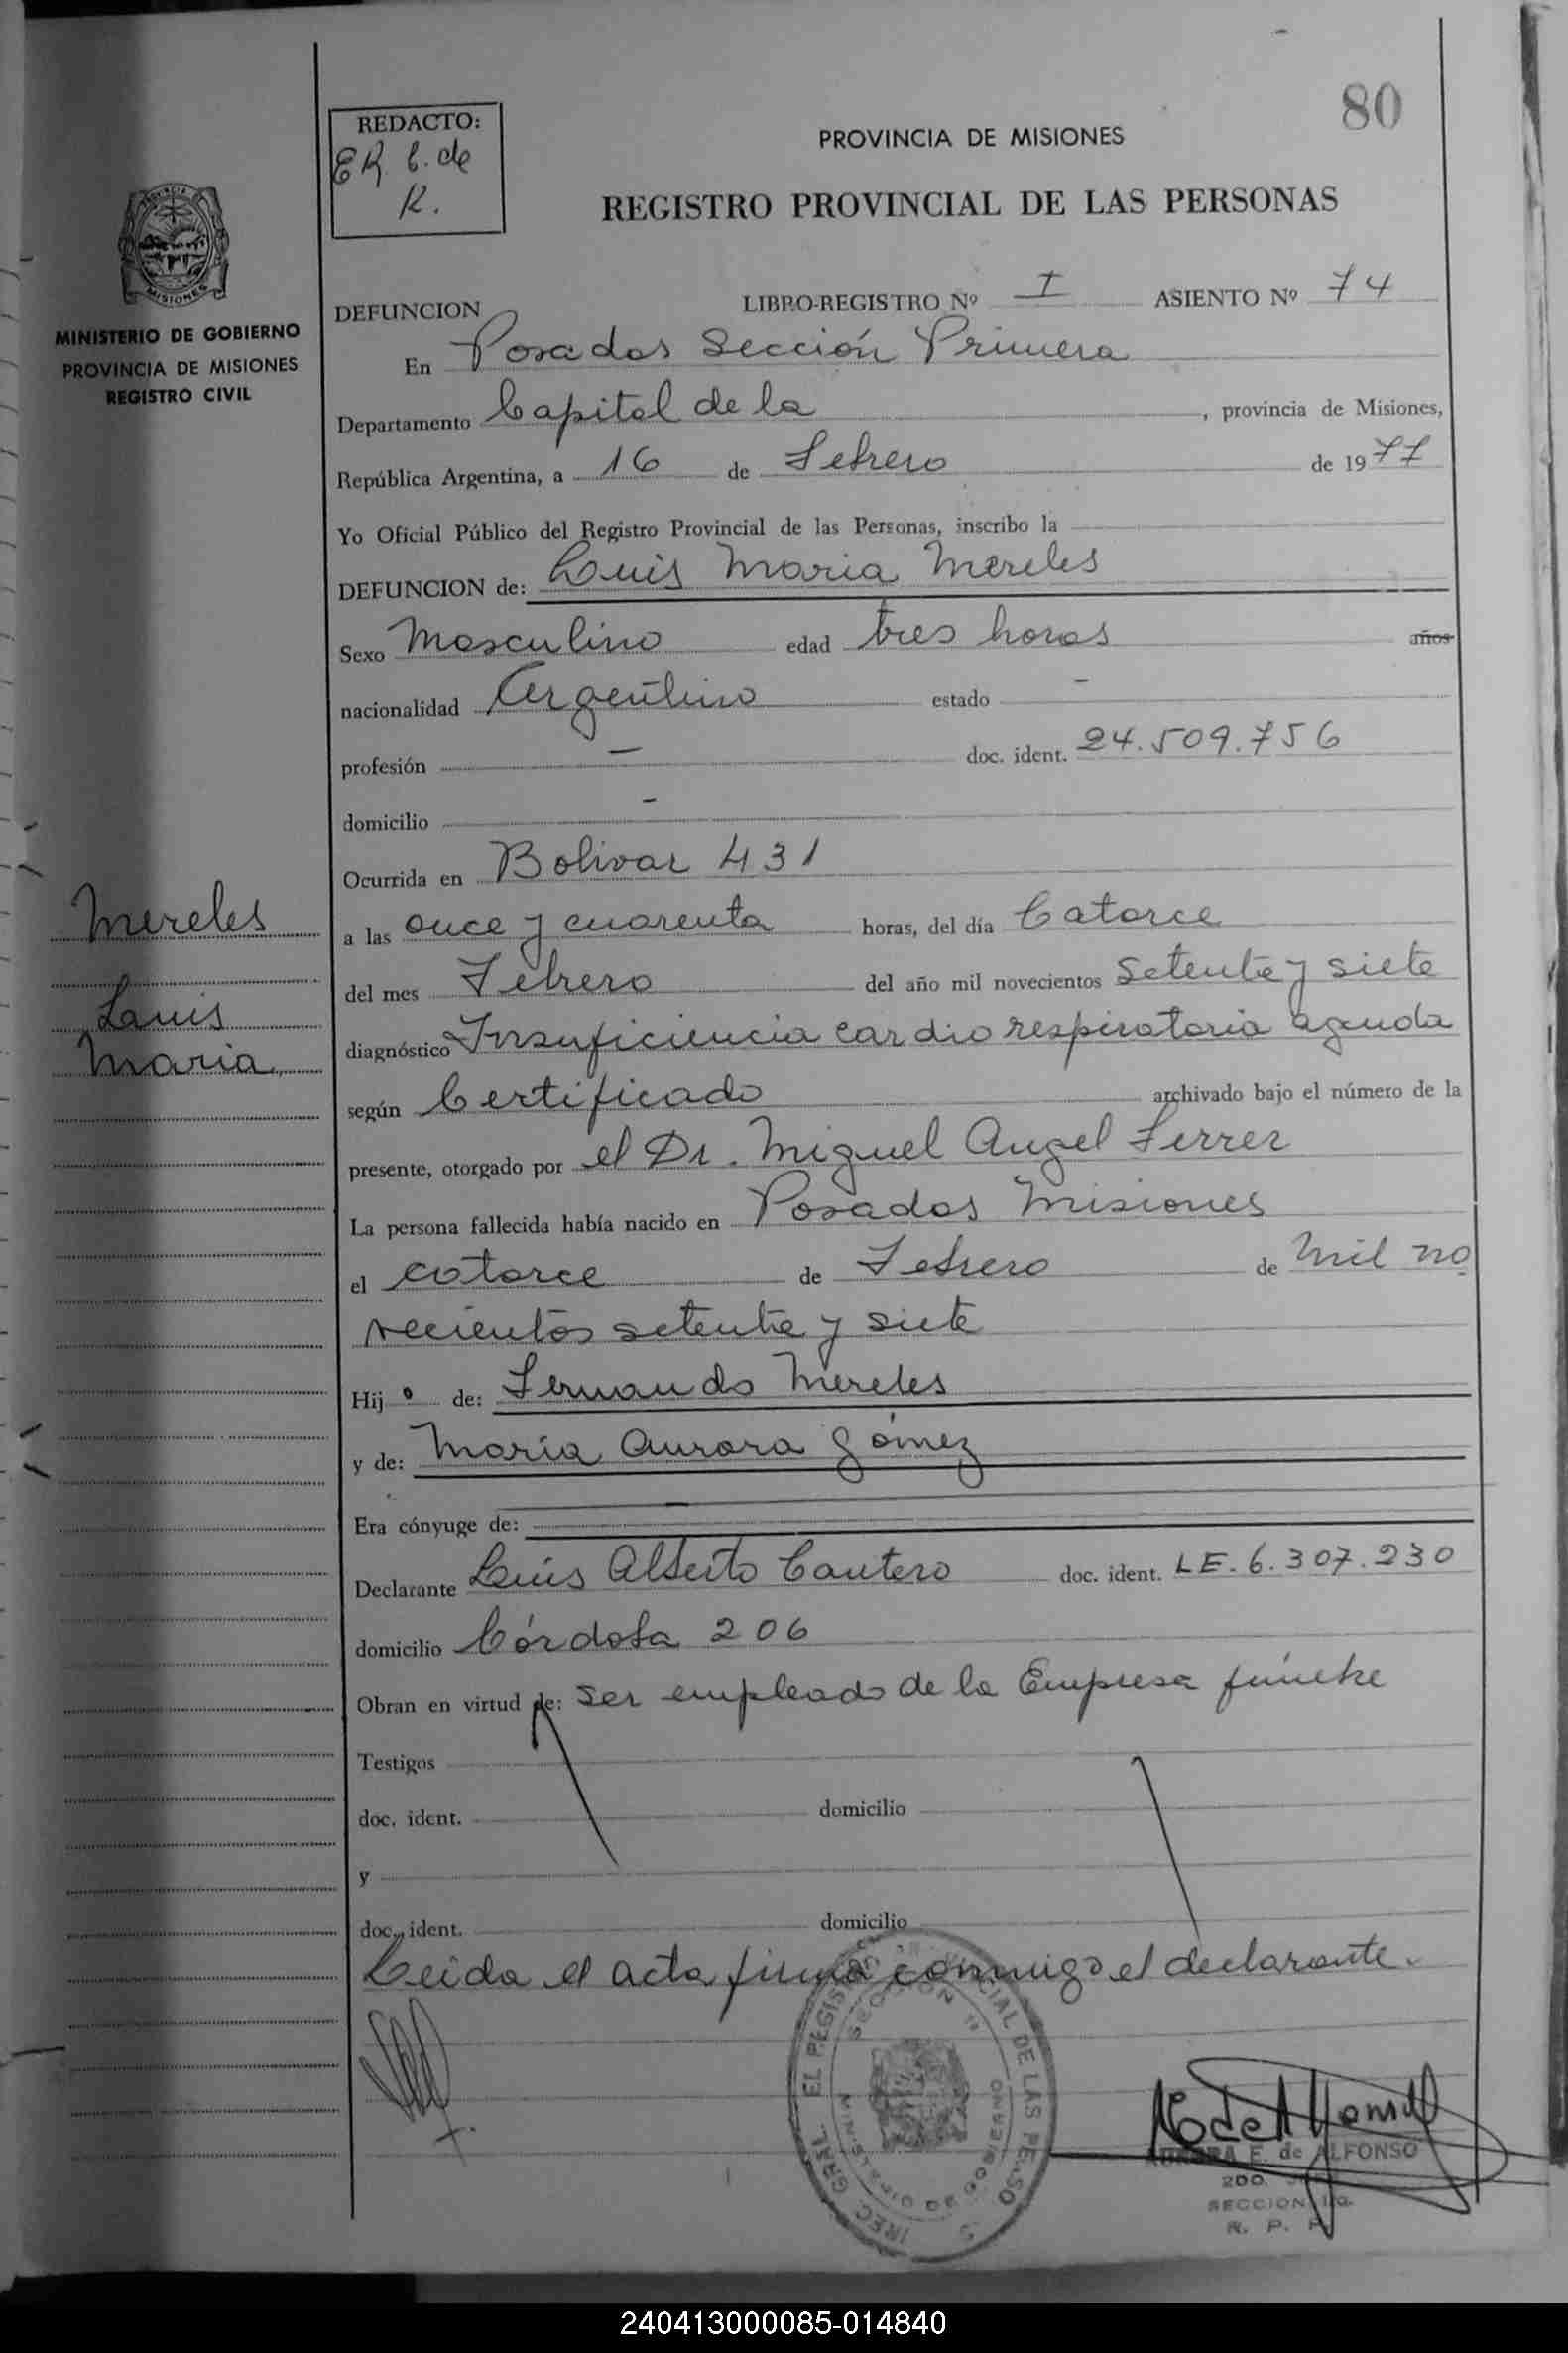 80
REDACTO:
ER. C. de
R.
PROVINCIA DE MISIONES
REGISTRO PROVINCIAL DE LAS PERSONAS
MINISTERIO DE GOBIERNO
PROVINCIA DE MISIONES
REGISTRO CIVIL
DEFUNCION LIBRO-REGISTRO Nº I ASIENTO Nº 74
En Posadas Sección Primera
Departamento Capital de la , provincia de Misiones,
República Argentina, a 16 de Febrero de 1977
Yo Oficial Público del Registro Provincial de las Personas, inscribo la
DEFUNCION de: Luis Maria Mereles
Sexo Masculino edad tres horas años
nacionalidad Argentino estado -
profesión - doc. ident. 24.509.756
domicilio -
Ocurrida en Bolivar 431
a las once y cuarenta horas, del día Catorce
del mes Febrero del año mil novecientos setenta y siete
diagnóstico Insuficiencia cardio respiratoria aguda
según Certificado archivado bajo el número de la
presente, otorgado por el Dr. Miguel Angel Ferrer
La persona fallecida había nacido en Posadas Misiones
el catorce de Febrero de mil no
vecientos setenta y siete
Hijo de: Fernando Mereles
y de: María Aurora Gómez
Era cónyuge de: -
Declarante Luis Alberto Cantero doc. ident. LE. 6.307.230
domicilio Córdoba 206
Obran en virtud de: ser empleado de la Empresa fúnebre
Testigos
doc. ident. domicilio
y
doc. ident. domicilio
Leida el acta firma conmigo el declarante.
Mereles
Luis
Maria
E. de ALFONSO
2DO.
SECCION 1a.
R. P. P.
240413000085-014840